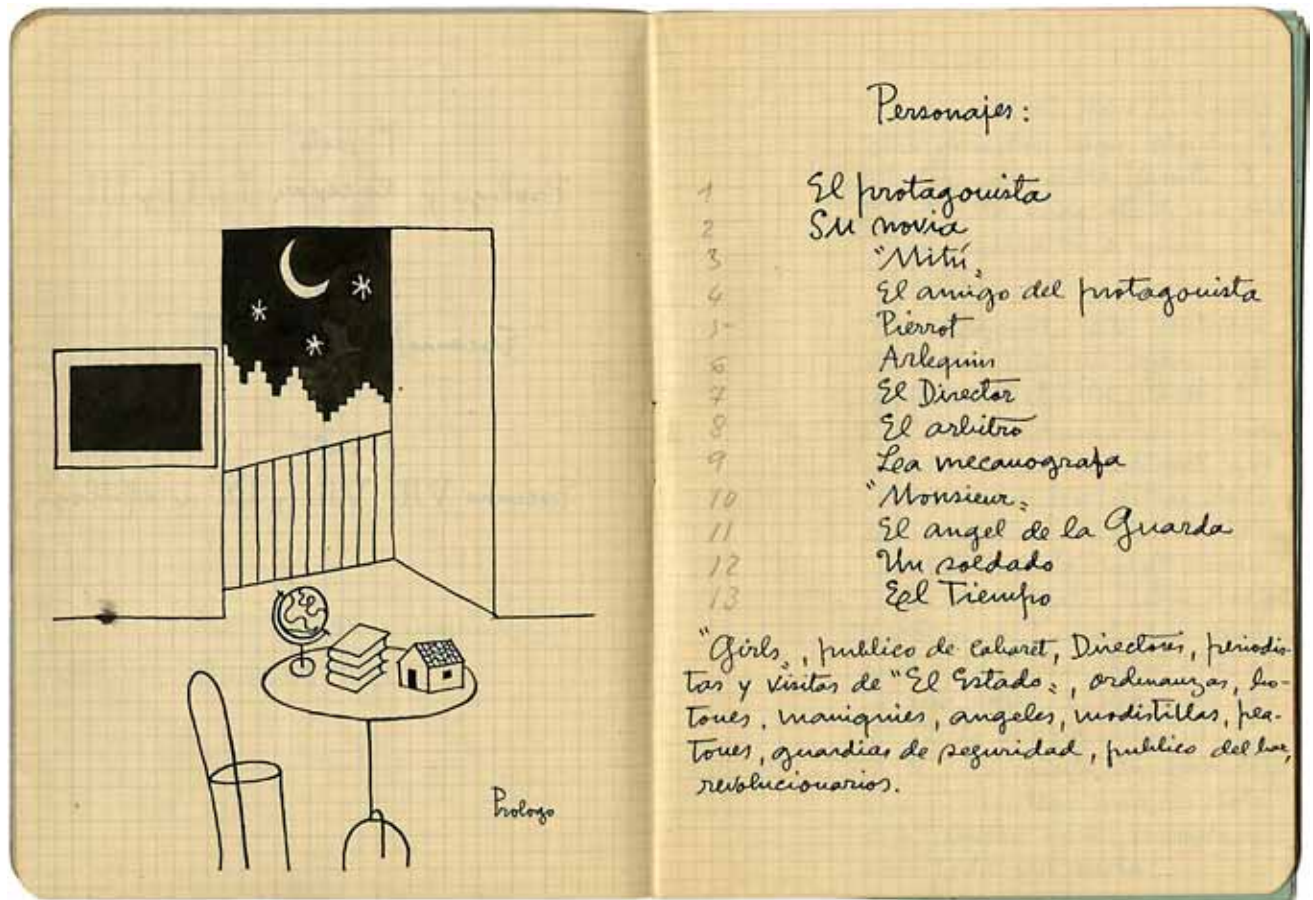 Prologo
Personajes:
1 El protagonista
2 Su novia
3 "Mitú"
4 El amigo del protagonista
5 Pierrot
6 Arlequin
7 El Director
8 El arbitro
9 Lea mecanografa
10 "Monsieur"
11 El angel de la Guarda
12 Un soldado
13 Eel Tiempo
"Girls", publico de cabaret, Directores, periodis-
tas y visitas de "El Estado", ordenanzas, bo-
tones, maniquies, angeles, modistillas, pea-
tones, guardias de seguridad, publico del bar,
revolucionarios.